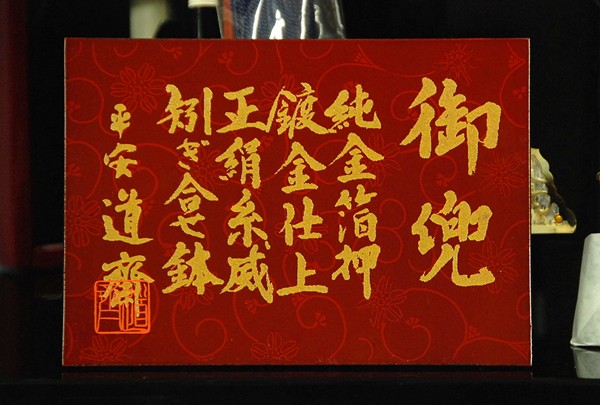 御兜
純金箔押
鍍金仕上
正絹糸威
矧ぎ合せ鉢
平安道斎